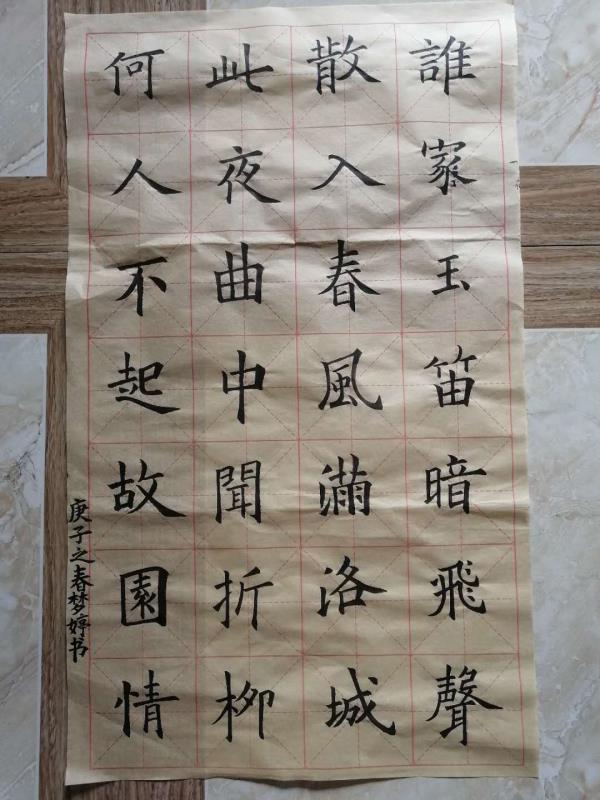 誰家玉笛暗飛聲
散入春風滿洛城
此夜曲中聞折柳
何人不起故園情
庚子之春梦婷书